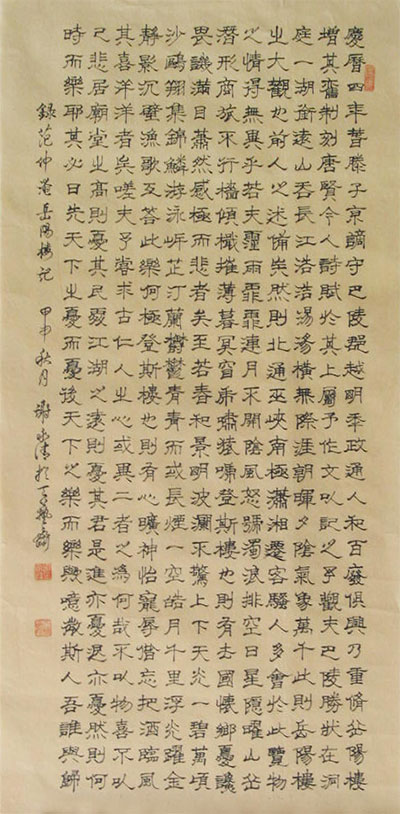 慶曆四年春滕子京謫守巴陵郡越明年政通人和百廢俱興乃重脩岳陽樓
增其舊制刻唐賢今人詩賦於其上屬予作文以記之予觀夫巴陵勝狀在洞
庭一湖銜遠山吞長江浩浩湯湯橫無際涯朝暉夕陰氣象萬千此則岳陽樓
之大觀也前人之述備矣然則北通巫峽南極瀟湘遷客騷人多會於此覽物
之情得無異乎若夫霪雨霏霏連月不開陰風怒號濁浪排空日星隱曜山岳
潛形商旅不行檣傾檝摧薄暮冥冥虎嘯猿啼登斯樓也則有去國懷鄉憂讒
畏譏滿目蕭然感極而悲者矣至若春和景明波瀾不驚上下天光一碧萬頃
沙鷗翔集錦鱗游泳岸芷汀蘭鬱鬱青青而或長煙一空皓月千里浮光躍金
靜影沉璧漁歌互答此樂何極登斯樓也則有心曠神怡寵辱偕忘把酒臨風
其喜洋洋者矣嗟夫予嘗求古仁人之心或異二者之為何哉不以物喜不以
己悲居廟堂之高則憂其民處江湖之遠則憂其君是進亦憂退亦憂然則何
時而樂耶其必曰先天下之憂而憂後天下之樂而樂歟噫微斯人吾誰與歸
錄范仲淹岳陽樓記 甲申秋月